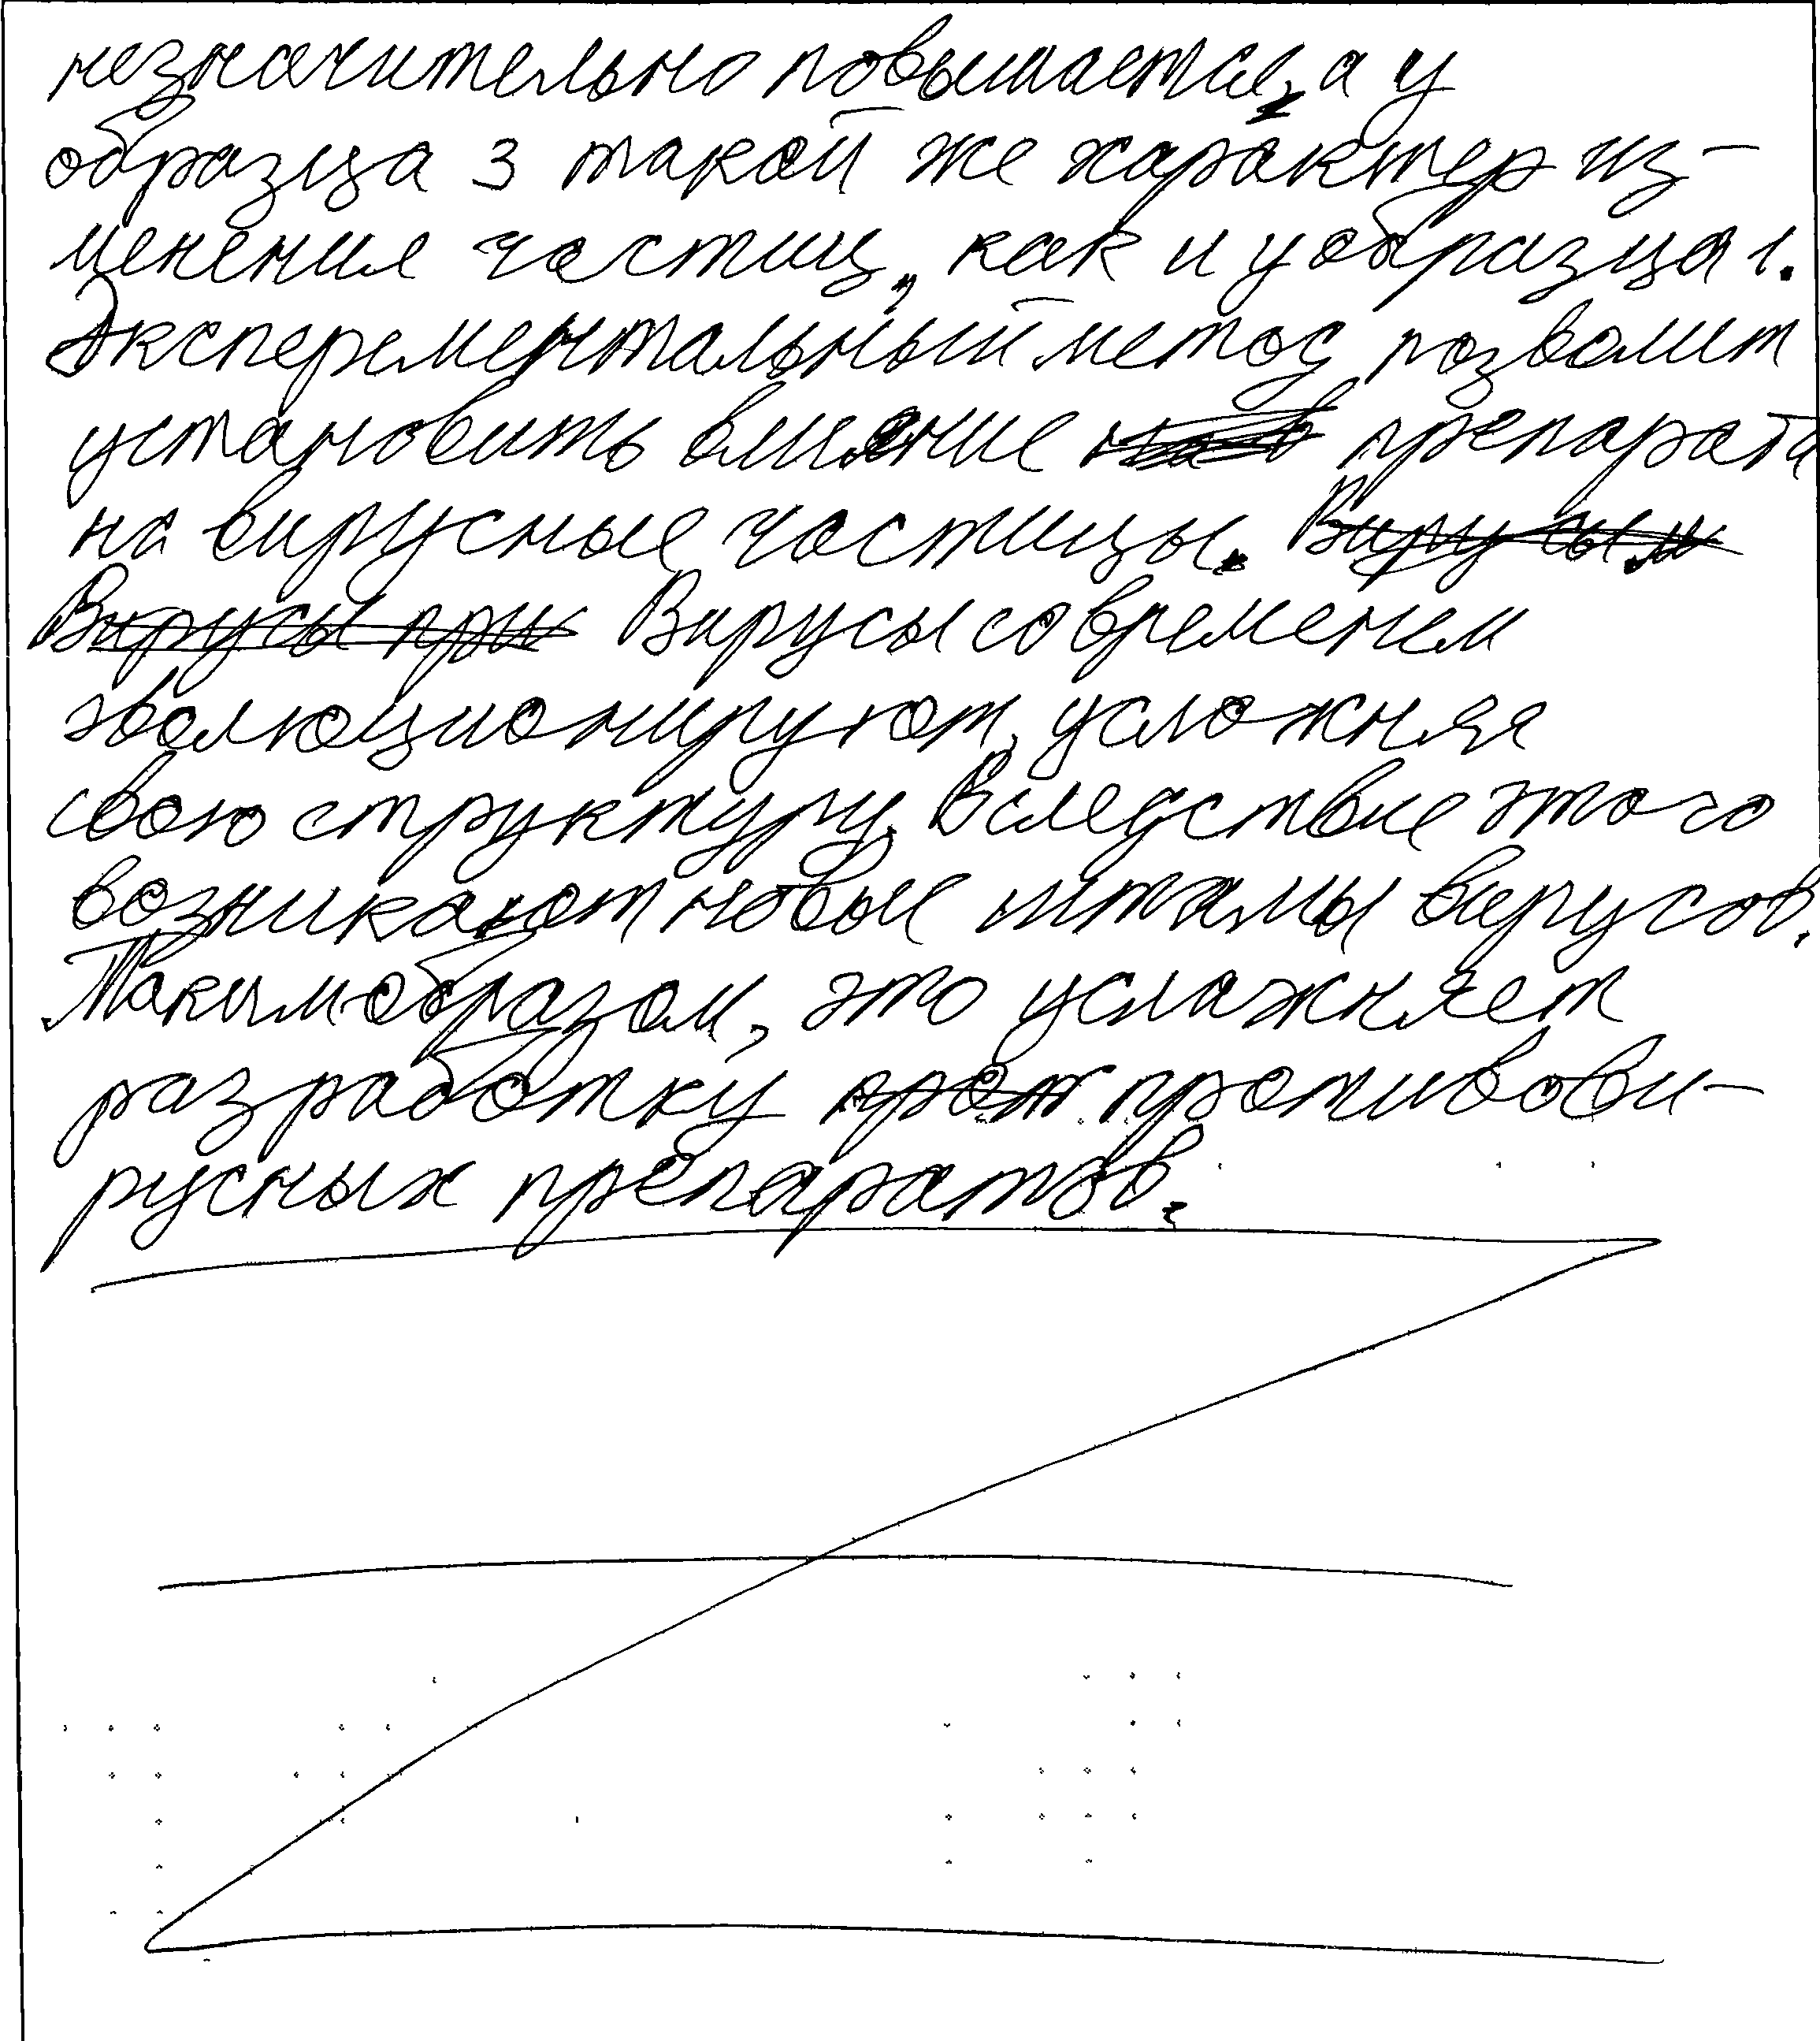 незначительно повышается, а у
образца 3 такой же характер из-
менения частиц, как и у образца 1.
Эксперементальный метод позволит
установить влияние препарата
на вирусные частицы. Вирусы и
Вирусы при Вирусы со временем
эволюционируют, усложняя
свою структуру. Вследствие этого
возникают новые штамы вирусов.
Таким образом, это усложняет
разработку прот противови-
русных препаратов.